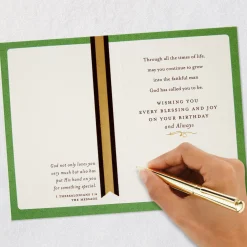 God not only loves you
very much but also has
put His hand on you
for something special.
1 THESSALONIANS 1:4
THE MESSAGE
Through all the times of life,
may you continue to grow
into the faithful man
God has called you to be.
WISHING YOU
EVERY BLESSING AND JOY
ON YOUR BIRTHDAY
and Always